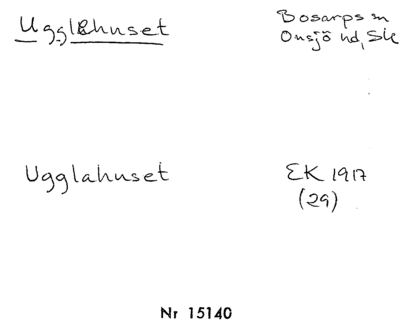 Ugglehuset
Bosarps sn
Onsjö hd, Sk
Ugglahuset
EK 1917
(29)
Nr 15140